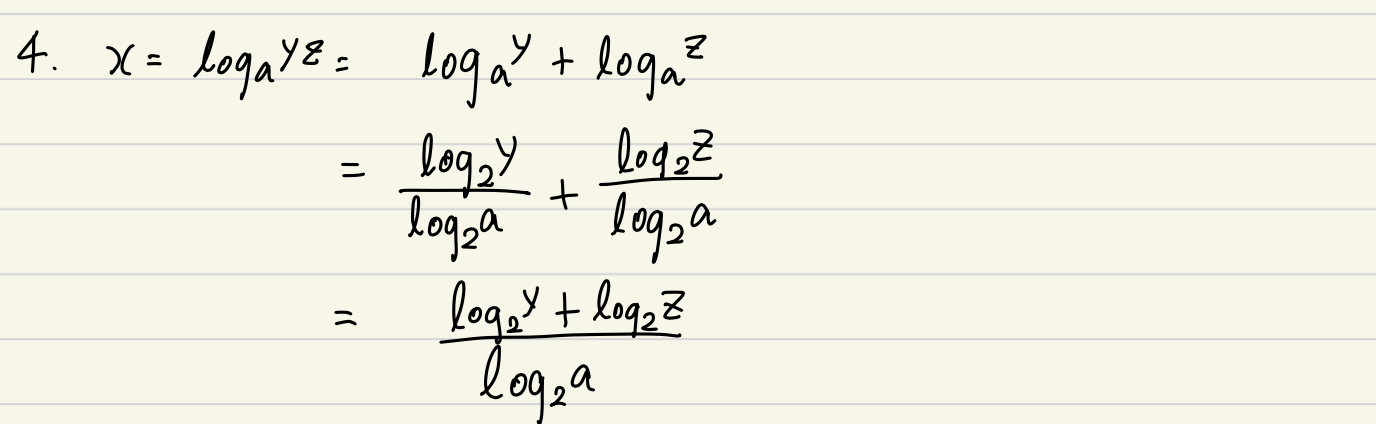 4. x = logₐ yz = logₐ y + logₐ z
= log₂ y / log₂ a + log₂ z / log₂ a
= (log₂ y + log₂ z) / log₂ a